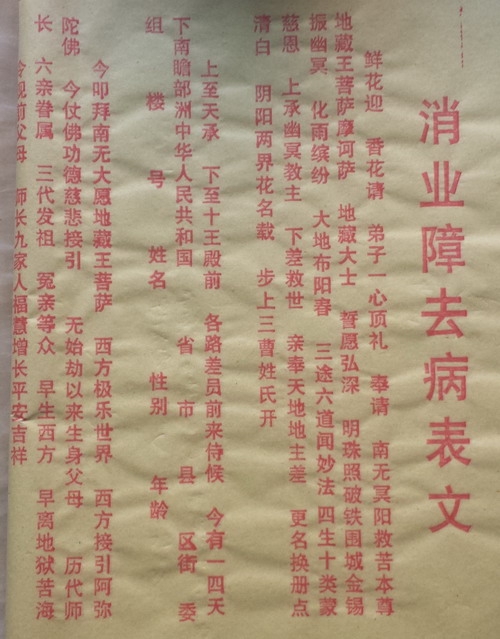 消业障去病表文
鲜花迎 香花请 弟子一心顶礼 奉请 南无冥阳救苦本尊
地藏王菩萨摩诃萨 地藏大士 誓愿弘深 明珠照破铁围城金锡
振幽冥 化雨缤纷 大地布阳春 三途六道闻妙法 四生十类蒙
慈恩 上承幽冥教主 下差救世 亲奉天地地主差 更名换册点
清白 阴阳两界花名载 步上三曹姓氏开
上至天承 下至十王殿前 各路差员前来侍候 今有一四天
下南瞻部洲中华人民共和国 省 市 县 区街 委
组 楼 号 姓名 性别 年龄
今叩拜南无大愿地藏王菩萨 西方极乐世界 西方接引阿弥
陀佛 今仗佛功德慈悲接引 无始劫以来生身父母 历代师
长 六亲眷属 三代发祖 冤亲等众 早生西方 早离地狱苦海
现前父母 师长九家人福慧增长平安吉祥